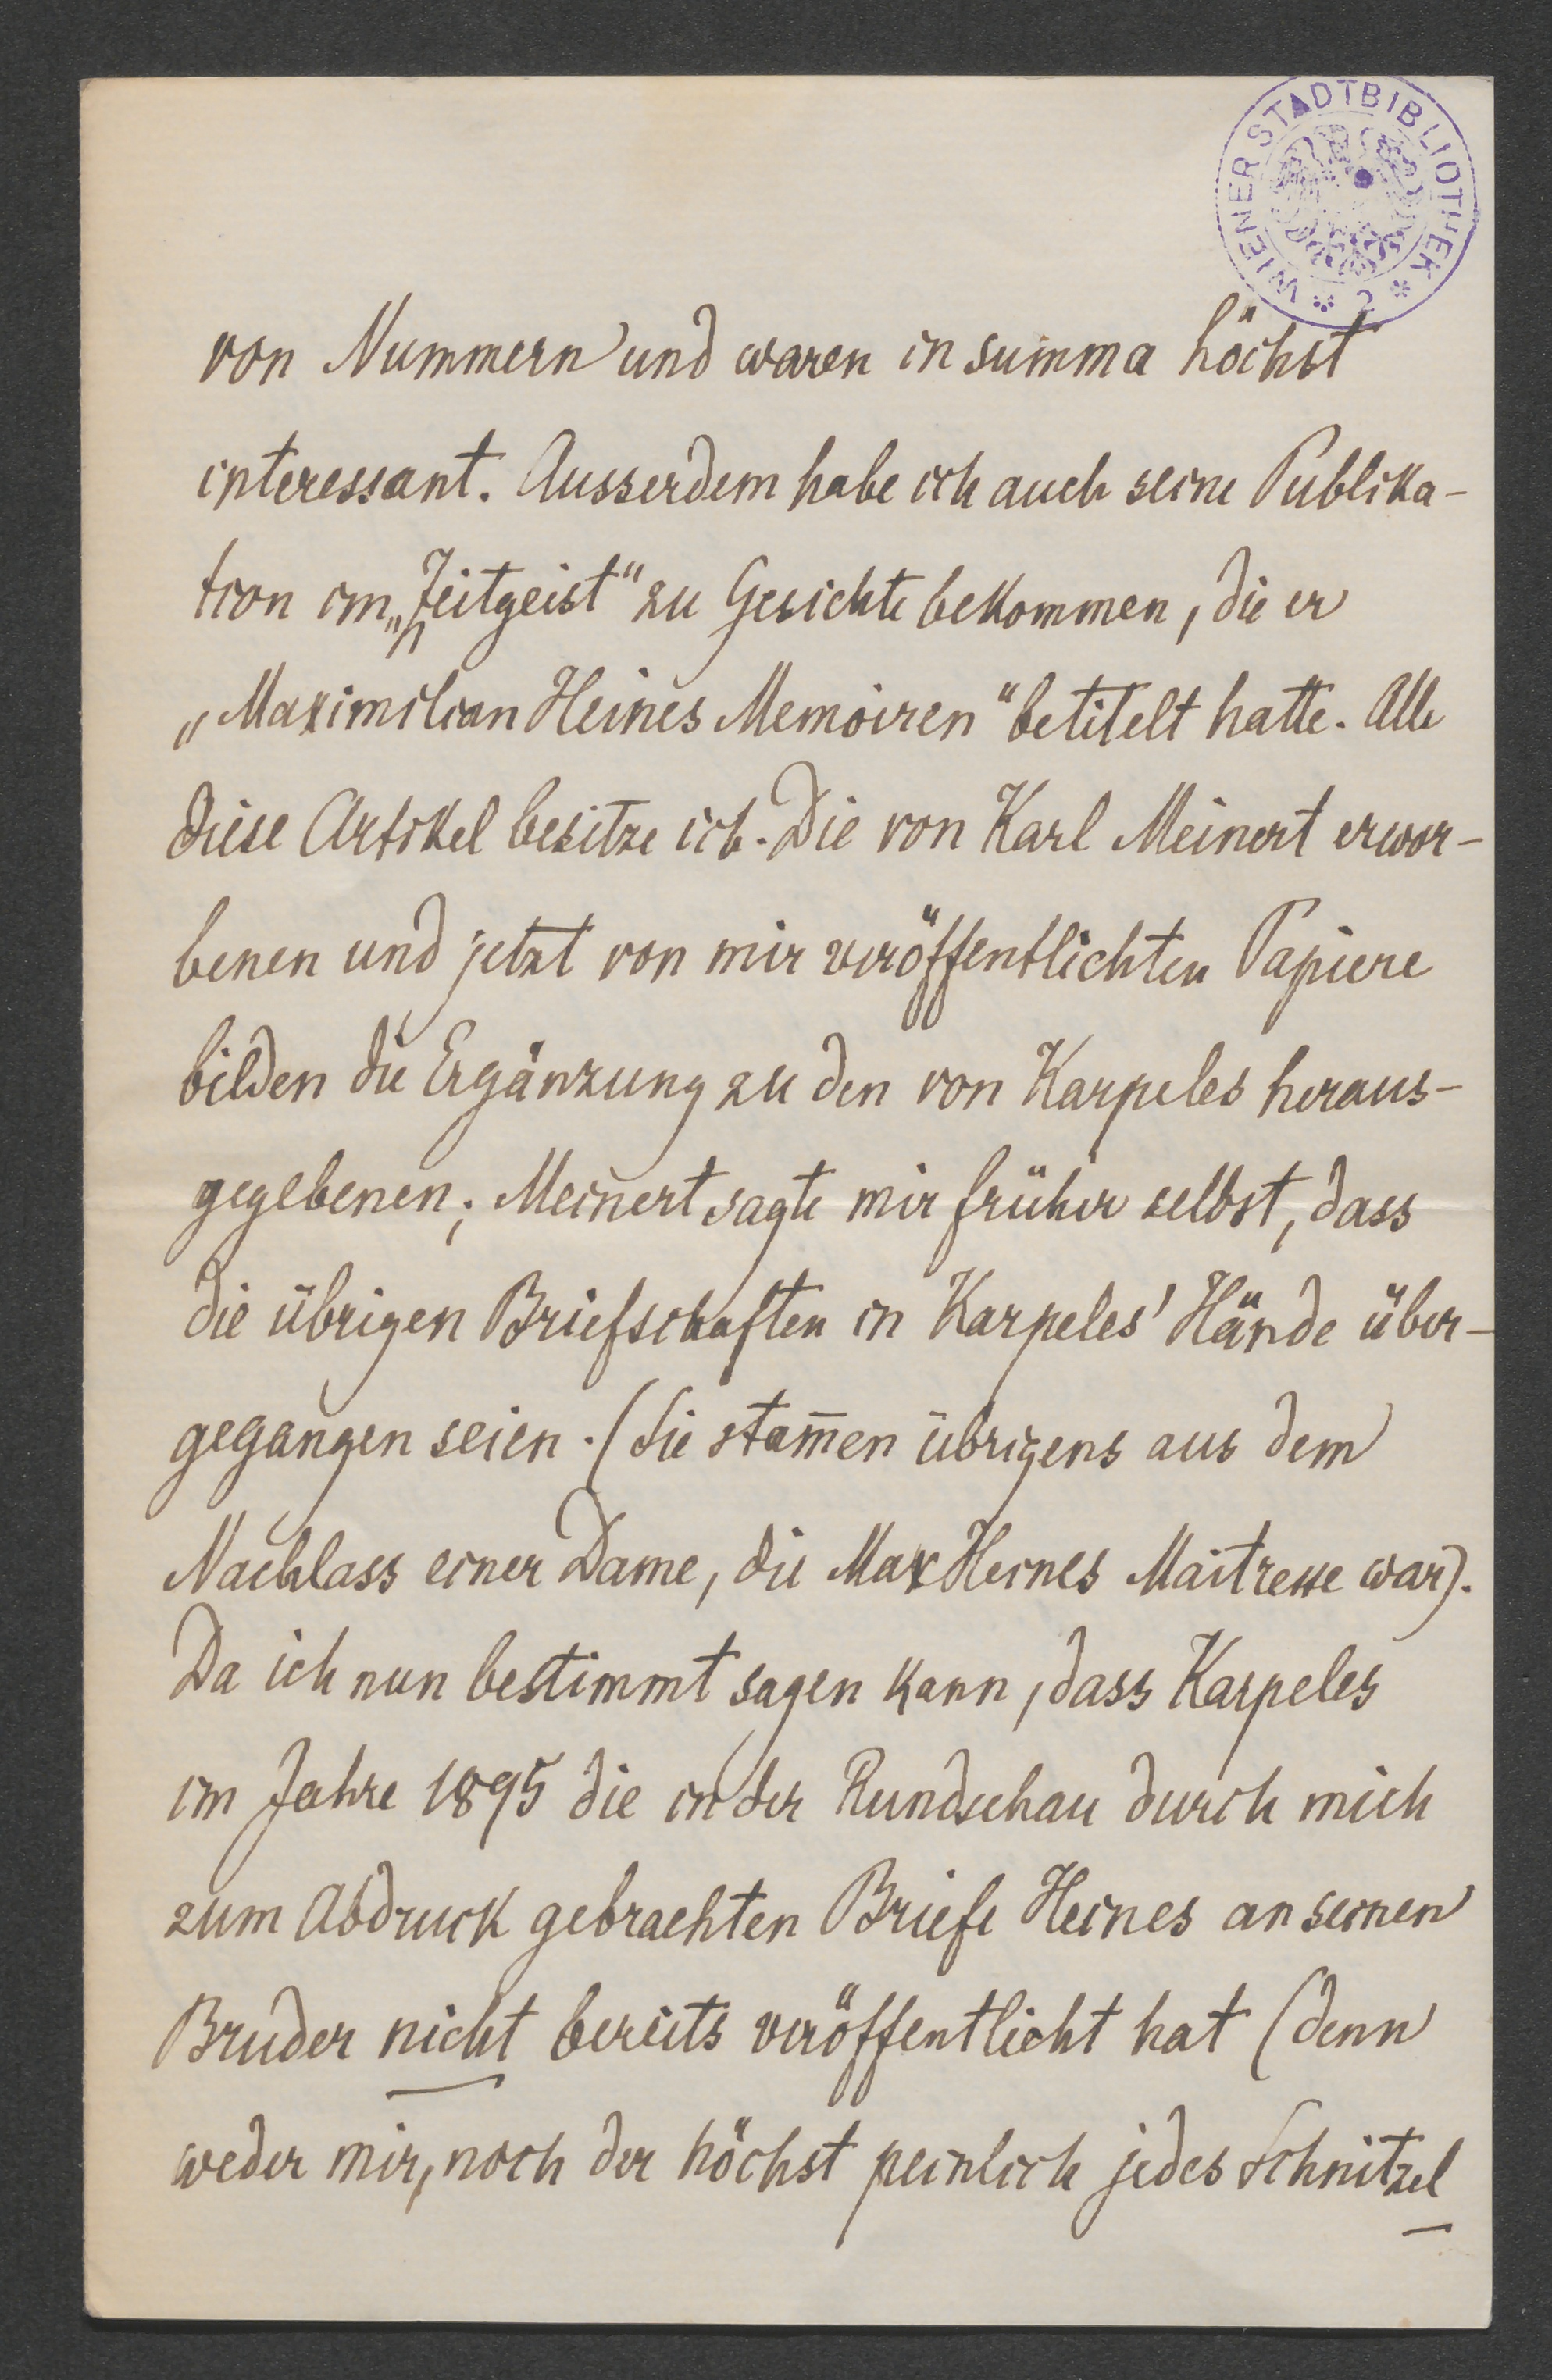 WIENER STADTBIBLIOTHEK
von Nummern und waren in summa höchst
interessant. Ausserdem habe ich auch seine Publika-
tion im „Zeitgeist“ zu Gesichte bekommen, die er
„Maximilian Heines Memoiren“ betitelt hatte. Alle
diese Artikel besitze ich. Die von Karl Meinert erwor-
benen und jetzt von mir veröffentlichten Papiere
bilden die Ergänzung zu den von Karpeles heraus-
gegebenen; Meinert sagte mir früher selbst, dass
die übrigen Briefschaften in Karpeles' Hände über-
gegangen seien. (Sie stam̄en übrigens aus dem
Nachlass einer Dame, die Max Heines Maitresse war).
Da ich nun bestimmt sagen kann, dass Karpeles
im Jahre 1895 die in der Rundschau durch mich
zum Abdruck gebrachten Briefe Heines an seinen
Bruder nicht bereits veröffentlicht hat (denn
weder mir, noch der höchst peinlich jedes Schnitzel